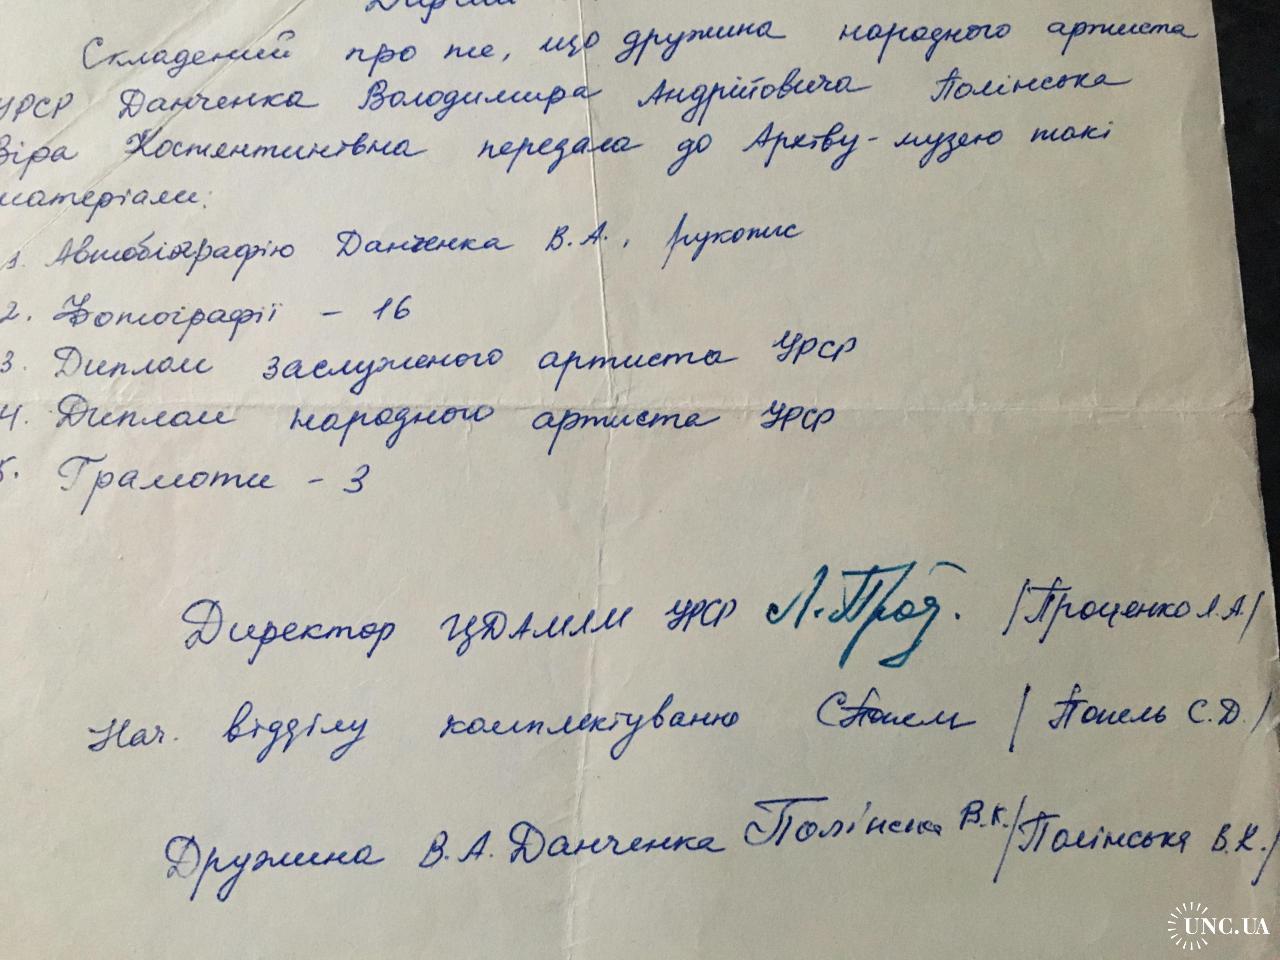 Складений про те, що дружина народного артиста
УРСР Данченка Володимира Андрійовича Полінська
Віра Костентинівна передала до Архіву-музею такі
матеріали:
1. Автобіографію Данченка В.А., рукопис
2. Фотографії - 16
3. Диплом заслуженого артиста УРСР
4. Диплом народного артиста УРСР
5. Грамоти - 3
Директор ЦДАМЛМ УРСР Л. Проц. /Проценко Л.А/
Нач. відділу комплектування /Попель С.Д./
Дружина В.А. Данченка Полінська В.К. /Полінська В.К./
UNC.UA